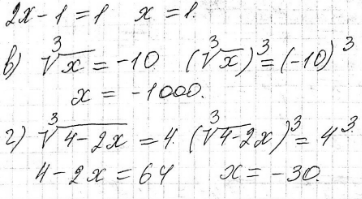 2x-1=1 x=1.
в) ∛x = -10 (∛x)³=(-10)³
x = -1000.
г) ∛4-2x = 4. (∛4-2x)³= 4³
4-2x=64 x=-30.